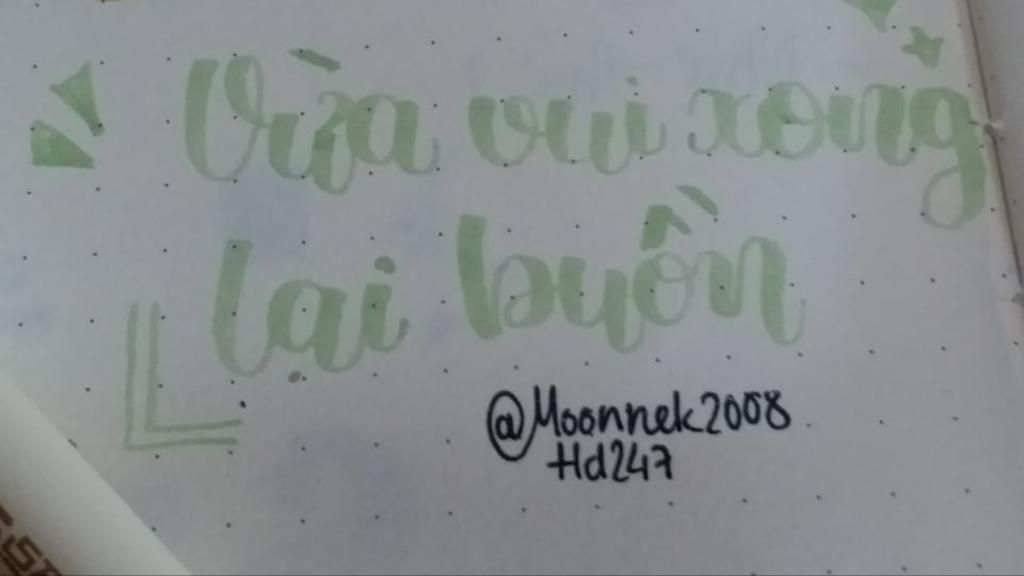 Vừa vui xong
lại buồn
@Moonnek2008
Hd247